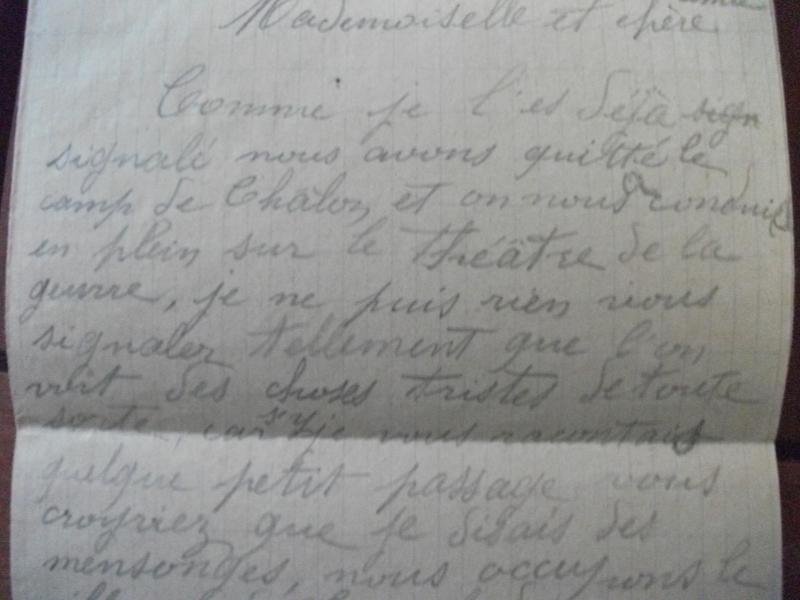 Mademoiselle et chère
Comme je l'es déjà sign
signalé nous avons quitté le
camp de Châlon, et on nous conduit
en plein sur le théâtre de la
guerre, je ne puis rien vous
signaler tellement que l'on
voit des choses tristes de toute
sorte, car si je vous racontais
quelque petit passage vous
croyriez que je disais des
mensonges, nous occupons le